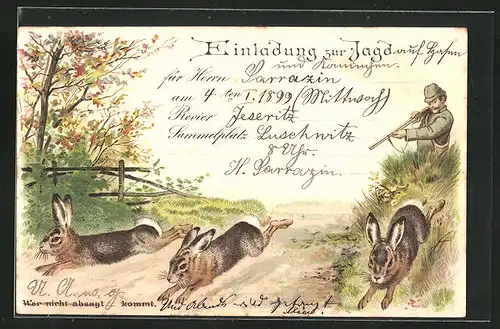 Einladung zur Jagd auf Hasen
und Kaninchen.
für Herrn Sarrazin
am 4 ten I. 1899 (Mittwoch)
Revier Jeseritz
Sammelplatz Luschwitz
8 Uhr.
H. Sarrazin.
Wer nicht absagt kommt.
Und Abends wird